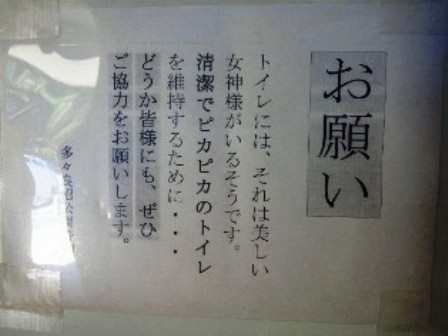 お願い
トイレには、それは美しい
女神様がいるそうです。
清潔でピカピカのトイレ
を維持するために・・・
どうか皆様にも、ぜひ
ご協力をお願いします。
多々良沼公園